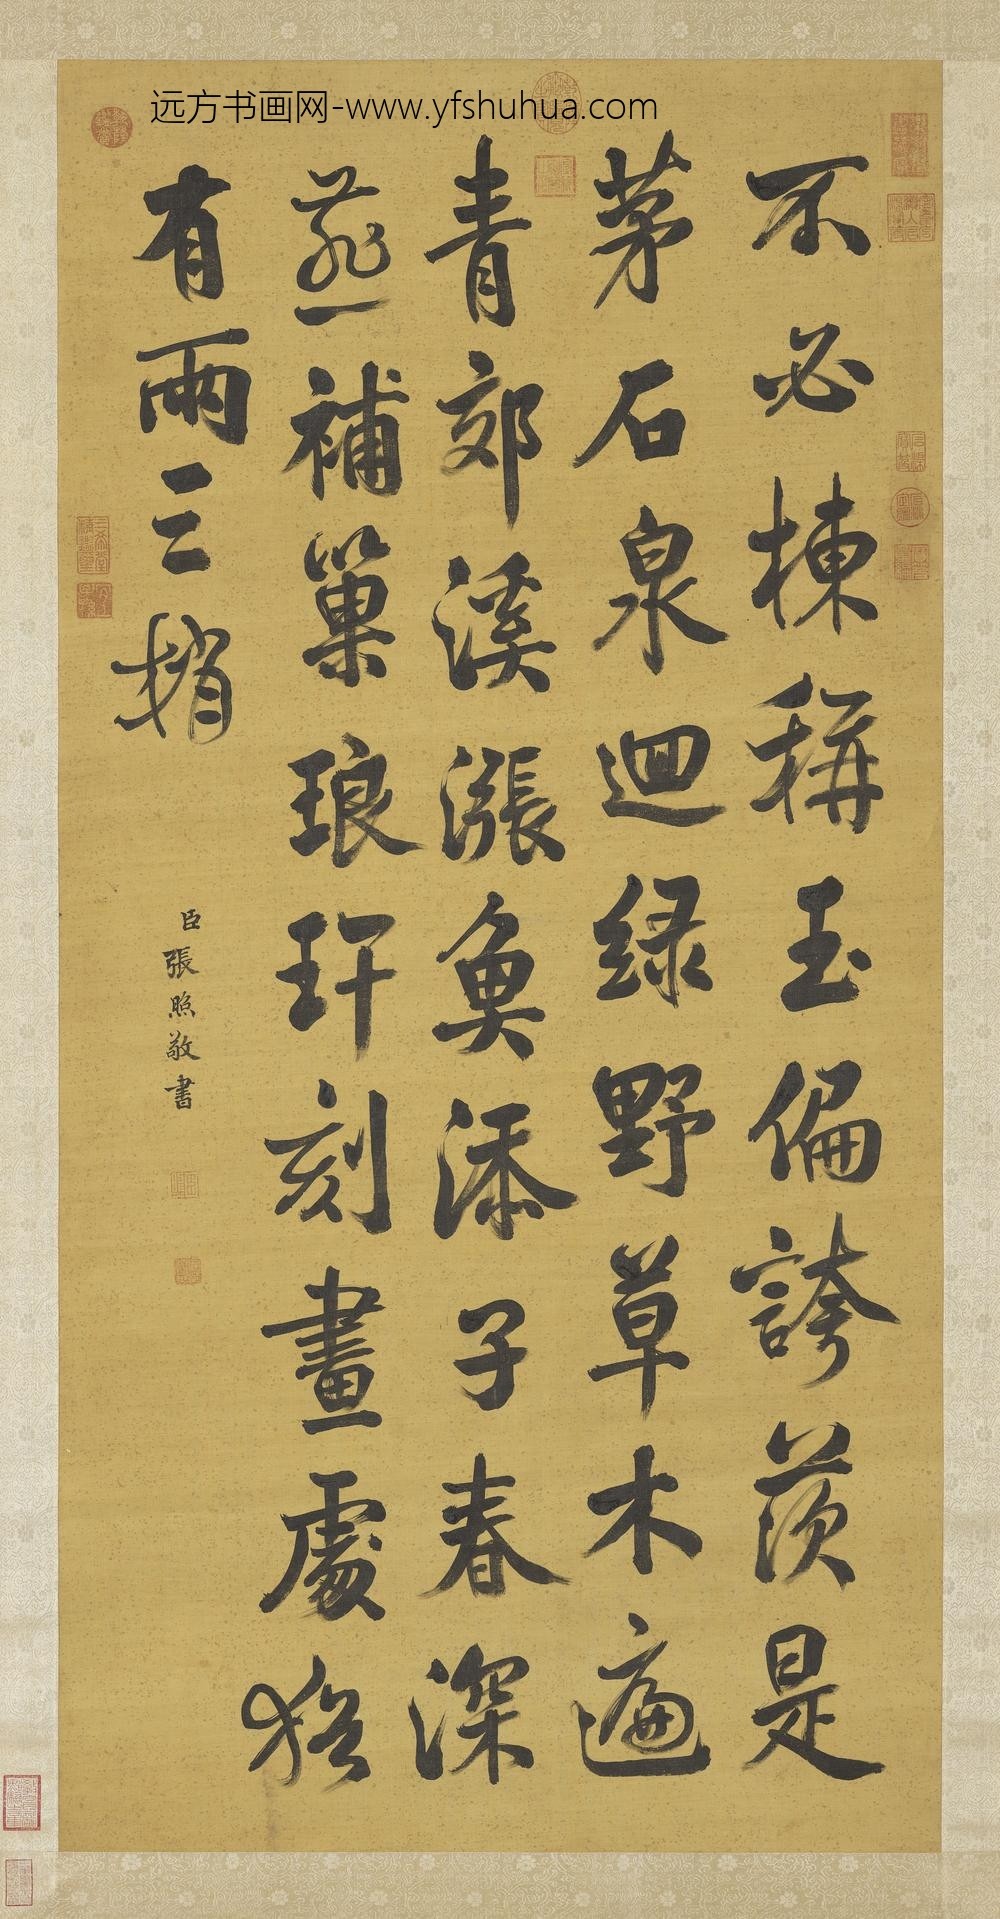 远方书画网-www.yfshuhua.com
不必棟稱玉偏誇茨是
茅石泉迴綠野草木遍
青郊溪漲魚添子春深
燕補巢琅玕刻畫處猶
有兩三梢
臣張照敬書